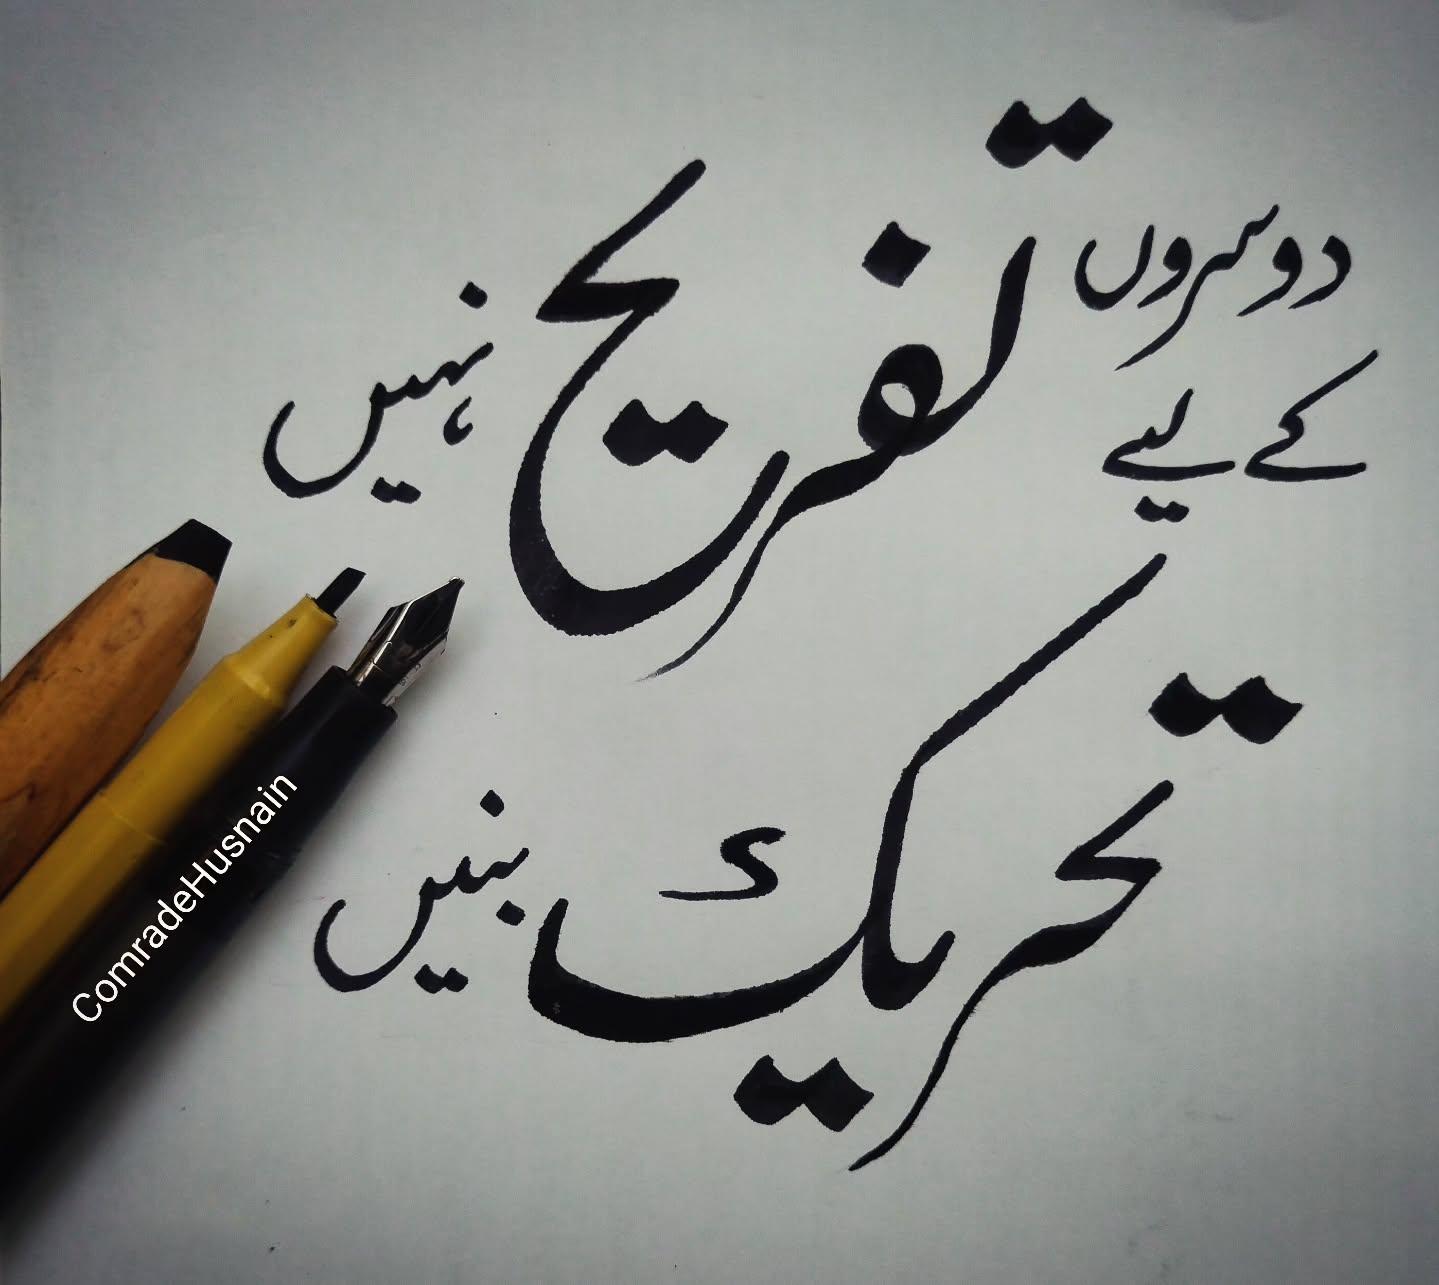 دوسروں
کے لیے
تفریح نہیں
تحریک بنیں
ComradeHusnain